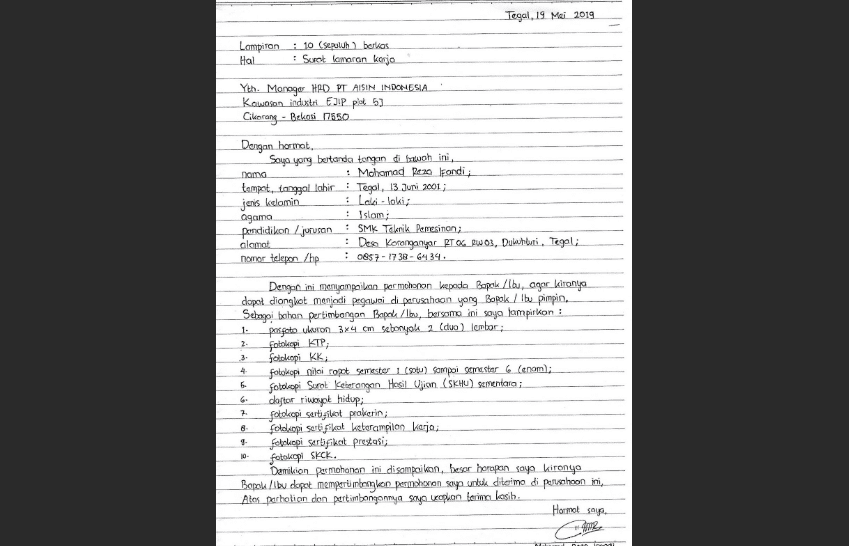 Tegal, 19 Mei 2019
Lampiran : 10 (sepuluh) berkas
Hal : Surat lamaran kerja
Yth. Manager HRD PT AISIN INDONESIA
Kawasan industri EJIP plot 5J
Cikarang - Bekasi 17550
Dengan hormat,
Saya yang bertanda tangan di bawah ini,
nama : Mohamad Reza Irandi;
tempat, tanggal lahir : Tegal, 13 Juni 2001;
jenis kelamin : Laki-laki;
agama : Islam;
pendidikan /jurusan : SMK Teknik Pemesinan;
alamat : Desa Karanganyar RT 06 RW 03, Dukuhturi, Tegal;
nomor telepon /hp : 0857-1738-6434.
Dengan ini menyampaikan permohonan kepada Bapak/Ibu, agar kiranya
dapat diangkat menjadi pegawai di perusahaan yang Bapak / Ibu pimpin.
Sebagai bahan pertimbangan Bapak/Ibu, bersama ini saya lampirkan :
1. pasfoto ukuran 3x4 cm sebanyak 2 (dua) lembar;
2. fotokopi KTP;
3. fotokopi KK;
4. fotokopi nilai rapot semester 1 (satu) sampai semester 6 (enam);
5. fotokopi Surat Keterangan Hasil Ujian (SKHU) sementara;
6. daftar riwayat hidup;
7. fotokopi sertifikat prakerin;
8. fotokopi sertifikat keterampilan kerja;
9. fotokopi sertifikat prestasi;
10. fotokopi SKCK.
Demikian permohonan ini disampaikan, besar harapan saya kiranya
Bapak/Ibu dapat mempertimbangkan permohonan saya untuk diterima di perusahaan ini,
Atas perhatian dan pertimbangannya saya ucapkan terima kasih.
Hormat saya,